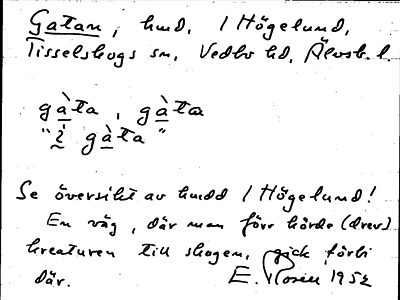 Gatan, hmd, 1 Högelund,
Tisselskogs sn, Vedbo hd, Älvsb. l.
gàta, gàtaɷ
"i gàta"
Se översikt av hmdd 1 Högelund!
En väg, där man förr körde (drev)
kreaturen till skogen, gick förbi
där. E. Rosell 1952